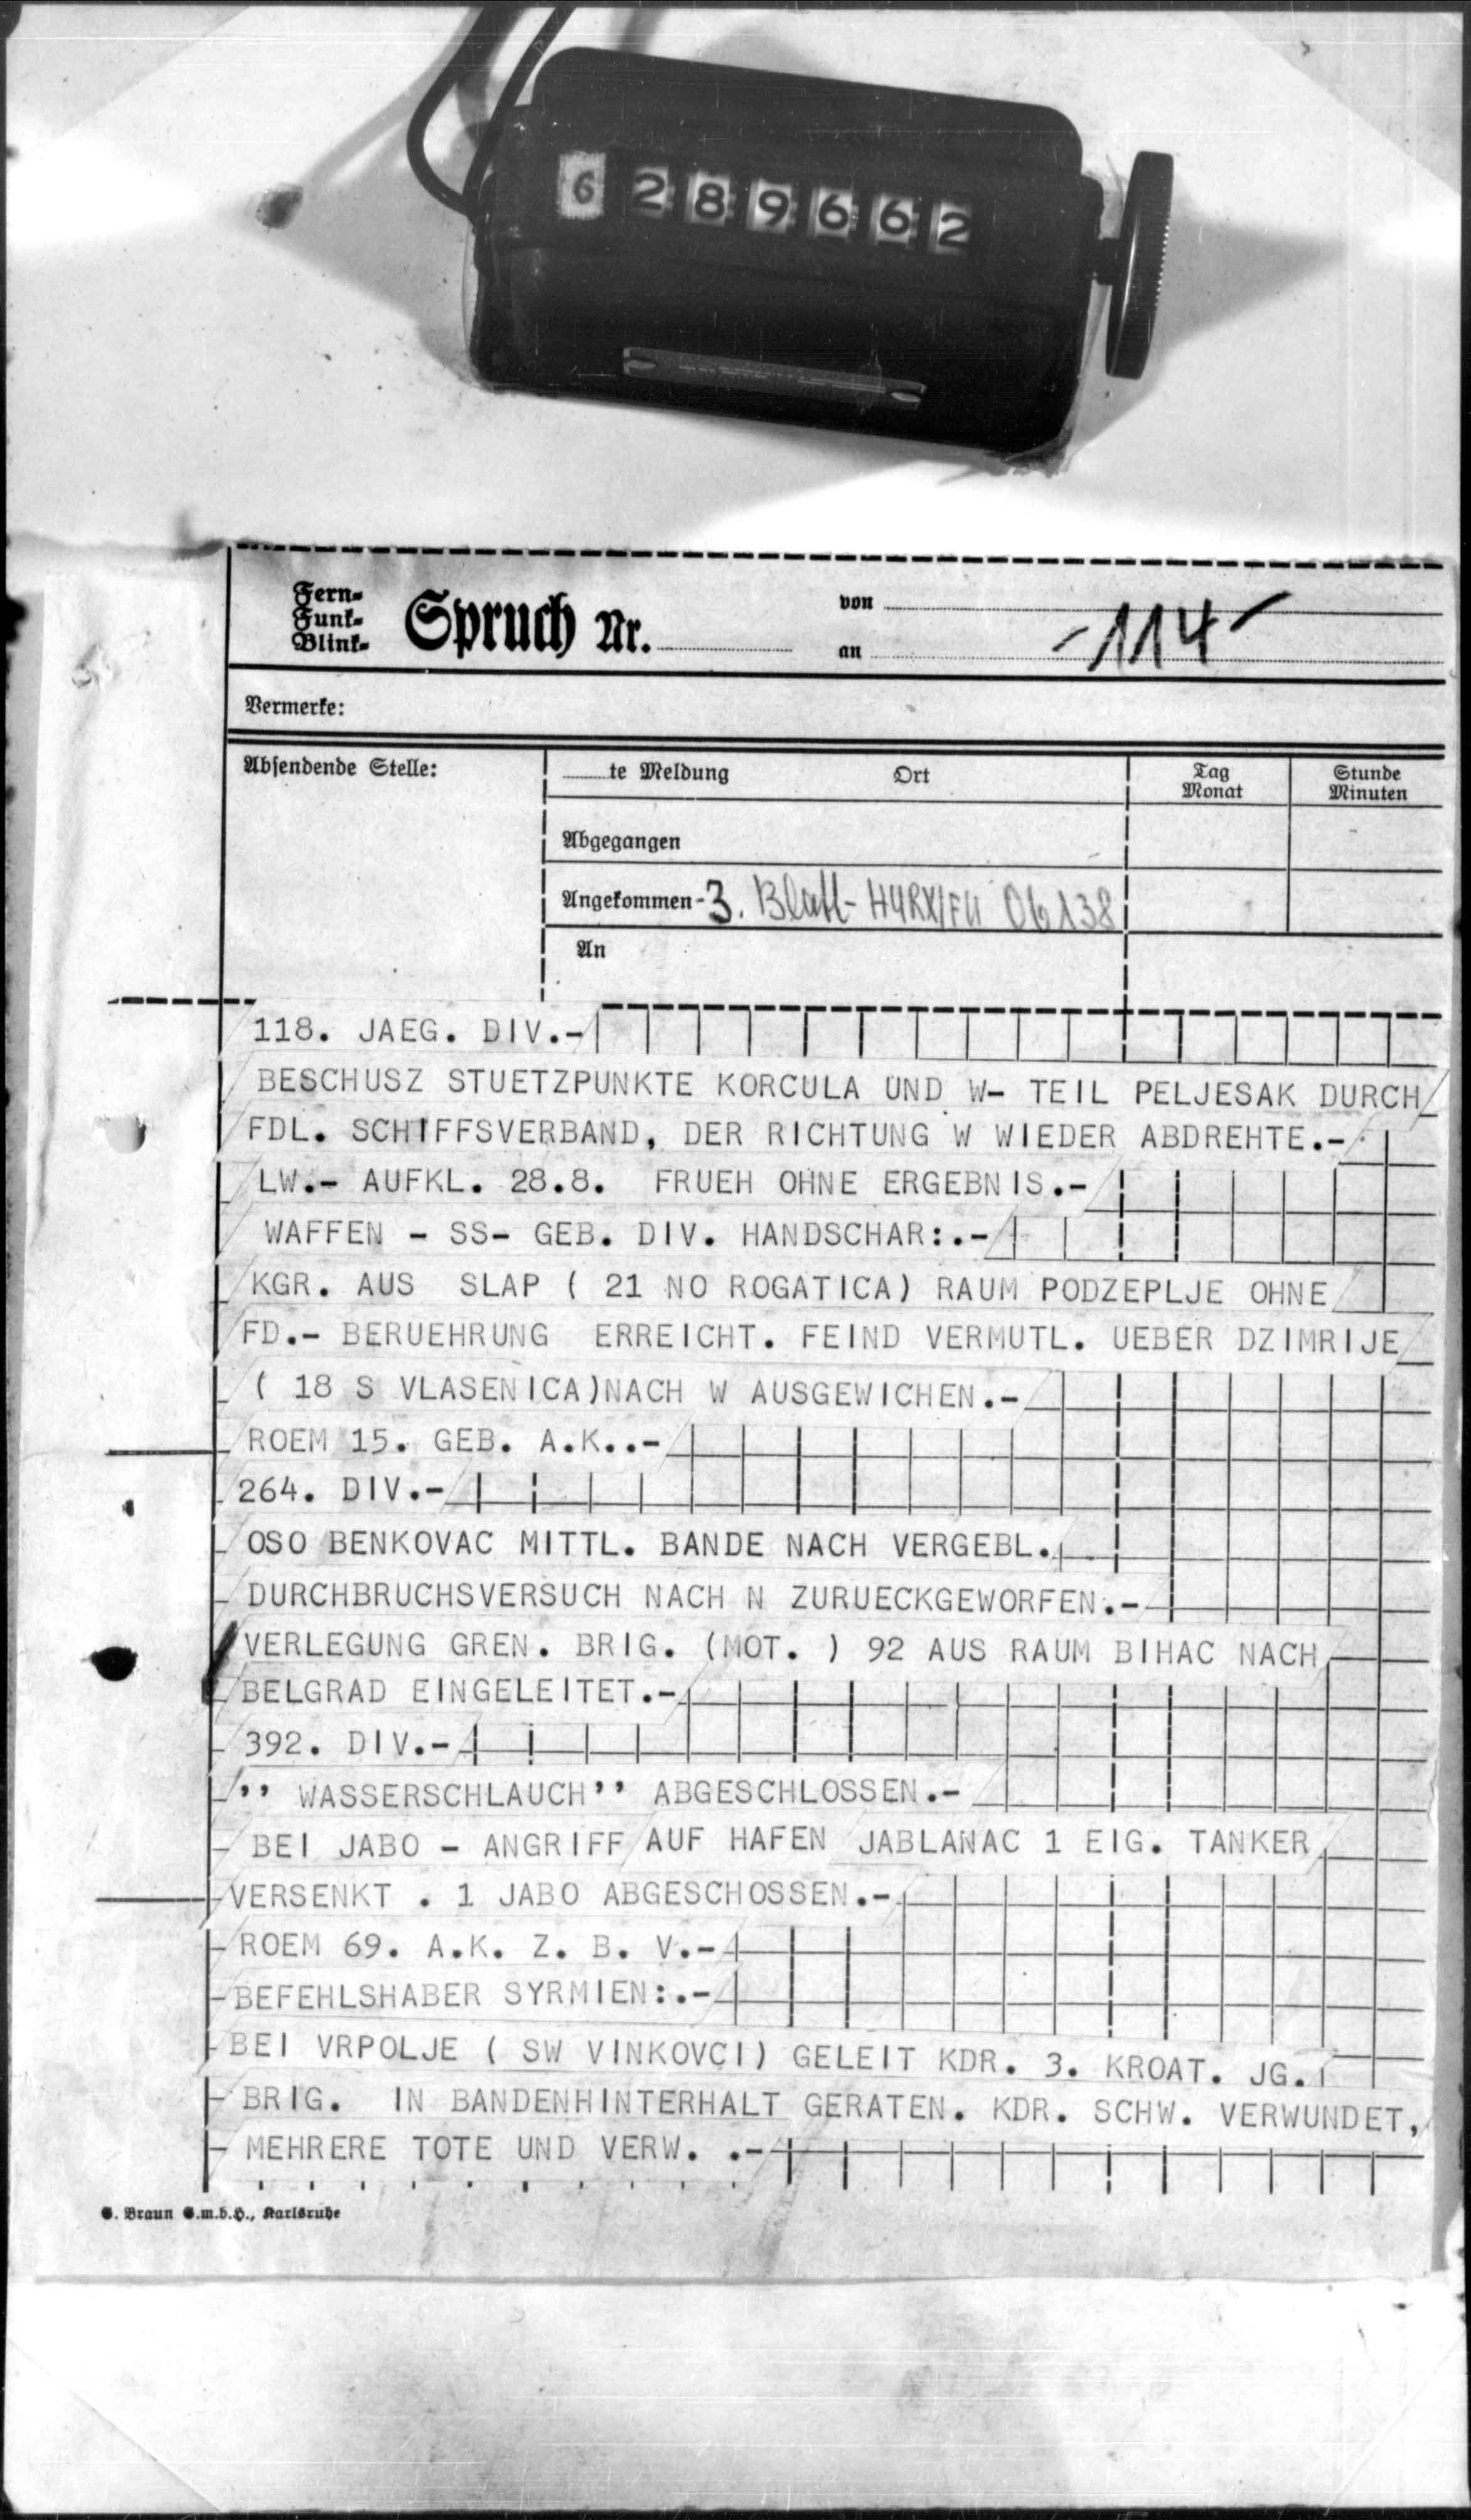 6 2 8 9 6 6 2
Fern-
Funk-
Blink-
Spruch Nr.
von
an
-114-
Vermerke:
Absendende Stelle:
te Meldung Ort
Tag
Monat
Stunde
Minuten
Abgegangen
Angekommen -3. Blatt- 06138
An
118. JAEG. DIV.-
BESCHUSZ STUETZPUNKTE KORCULA UND W- TEIL PELJESAK DURCH
FDL. SCHIFFSVERBAND, DER RICHTUNG W WIEDER ABDREHTE.-
LW.- AUFKL. 28.8. FRUEH OHNE ERGEBNIS.-
WAFFEN - SS- GEB. DIV. HANDSCHAR:.-
KGR. AUS SLAP ( 21 NO ROGATICA) RAUM PODZEPLJE OHNE
FD.- BERUEHRUNG ERREICHT. FEIND VERMUTL. UEBER DZIMRIJE
( 18 S VLASENICA)NACH W AUSGEWICHEN.-
ROEM 15. GEB. A.K..-
264. DIV.-
OSO BENKOVAC MITTL. BANDE NACH VERGEBL.
DURCHBRUCHSVERSUCH NACH N ZURUECKGEWORFEN.-
VERLEGUNG GREN. BRIG. (MOT. ) 92 AUS RAUM BIHAC NACH
BELGRAD EINGELEITET.-
392. DIV.-
’’ WASSERSCHLAUCH’’ ABGESCHLOSSEN.-
BEI JABO - ANGRIFF AUF HAFEN JABLANAC 1 EIG. TANKER
VERSENKT . 1 JABO ABGESCHOSSEN.-
ROEM 69. A.K. Z. B. V.-
BEFEHLSHABER SYRMIEN:.-
BEI VRPOLJE ( SW VINKOVCI) GELEIT KDR. 3. KROAT. JG.
BRIG. IN BANDENHINTERHALT GERATEN. KDR. SCHW. VERWUNDET,
MEHRERE TOTE UND VERW. .-
G. Braun G.m.b.H., Karlsruhe